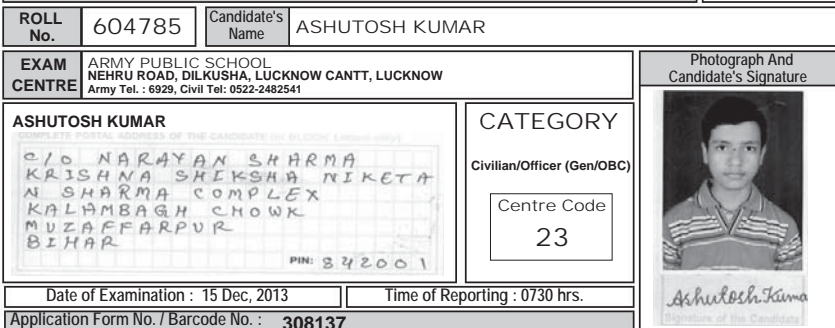 ROLL No. 604785 Candidate's Name ASHUTOSH KUMAR
EXAM CENTRE
ARMY PUBLIC SCHOOL
NEHRU ROAD, DILKUSHA, LUCKNOW CANTT, LUCKNOW
Army Tel. : 6929, Civil Tel: 0522-2482541
Photograph And
Candidate's Signature
ASHUTOSH KUMAR
COMPLETE POSTAL ADDRESS OF THE CANDIDATE (in BLOCK Letters only)
C/O NARAYAN SHARMA
KRISHNA SHIKSHA NIKETA
N SHARMA COMPLEX
KALAMBAGH CHOWK
MUZAFFARPUR
BIHAR
PIN: 842001
CATEGORY
Civilian/Officer (Gen/OBC)
Centre Code
23
Ashutosh Kuma
Signature of the Candidate
Date of Examination : 15 Dec, 2013 Time of Reporting : 0730 hrs.
Application Form No. / Barcode No. : 308137